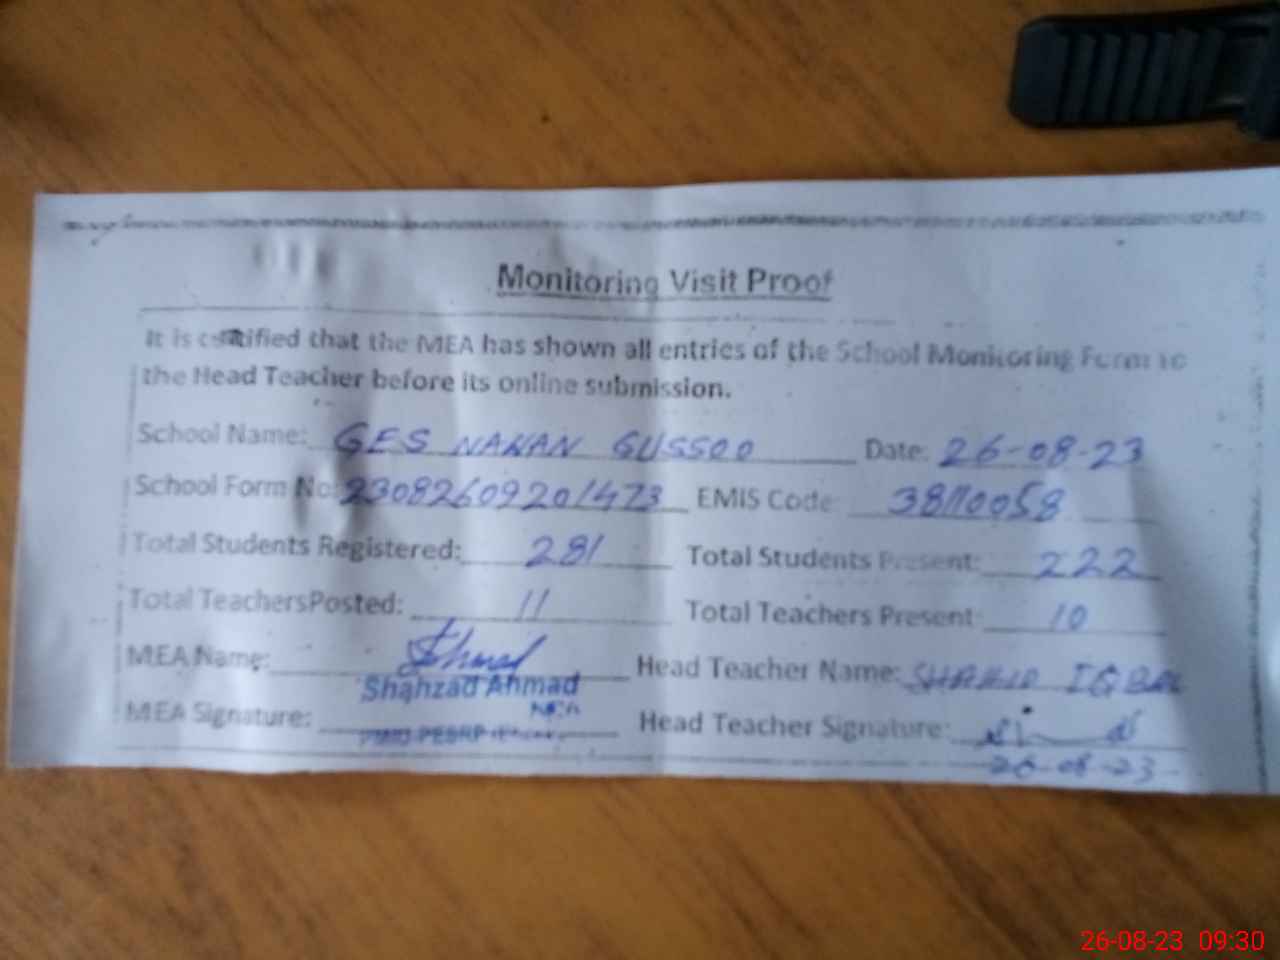 Monitoring Visit Proof
It is certified that the MEA has shown all entries of the School Monitoring Form to
the Head Teacher before its online submission.
School Name: GES NAWAN GUSSOO Date: 26-08-23
School Form No: 23082609201473 EMIS Code: 38110058
Total Students Registered: 281 Total Students Present: 222
Total TeachersPosted: 11 Total Teachers Present: 10
MEA Name: Head Teacher Name: SHAHID IQBAL
Shahzad Ahmad
MEA
MEA Signature: PMIU-PESRP Head Teacher Signature:
26-08-23
26-08-23 09:30